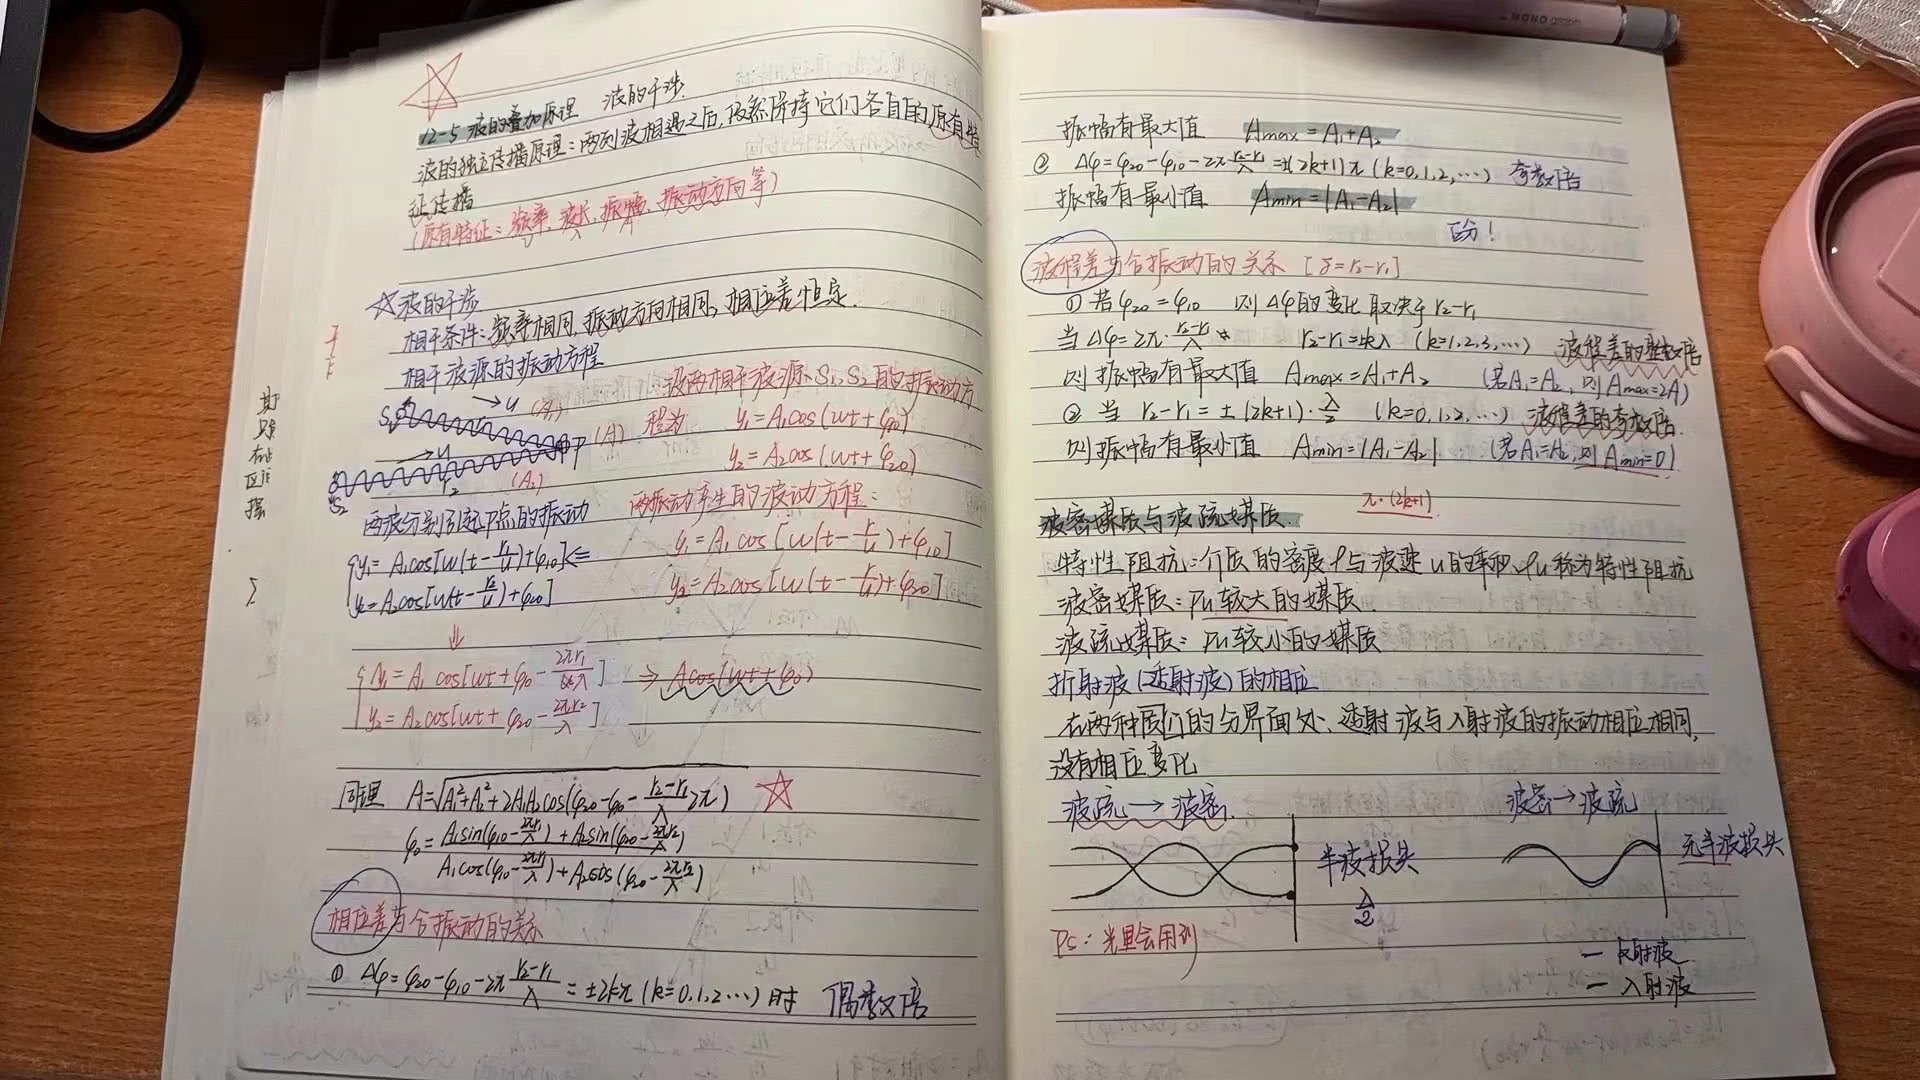 12-5 波的叠加原理 波的干涉
波的独立传播原理：两列波相遇之后，仍然保持它们各自的原有特
征传播
(原有特征：频率、波长、振幅、振动方向等)
ν λ A
☆波的干涉
相干条件：频率相同，振动方向相同，相位差恒定.
相干波源的振动方程
设两相干波源、S₁、S₂的振动方
程为 y₁=A₁cos(wt+φ₁₀)
y₂=A₂cos(wt+φ₂₀)
S₁ → u (A₁)
P (A)
→ u
S₂ r₂ (A₂)
两波分别引起P点的振动
{y₁=A₁cos[w(t-r₁/u)+φ₁₀] ⇐
{y₂=A₂cos[w(t-r₂/u)+φ₂₀]
两振动产生的波动方程：
y₁=A₁cos[w(t-r/u)+φ₁₀]
y₂=A₂cos[w(t-r/u)+φ₂₀]
{y₁=A₁cos[wt+φ₁₀-2πr₁/λ] ⇒ Acos(wt+φ₀)
{y₂=A₂cos[wt+φ₂₀-2πr₂/λ]
同理 A=√A₁²+A₂²+2A₁A₂cos(φ₂₀-φ₁₀-(r₂-r₁)/λ 2π) ☆
φ₀=A₁sin(φ₁₀-2πr₁/λ)+A₂sin(φ₂₀-2πr₂/λ)
A₁cos(φ₁₀-2πr₁/λ)+A₂cos(φ₂₀-2πr₂/λ)
相位差与合振动的关系
① Δφ=φ₂₀-φ₁₀-2π(r₂-r₁)/λ=±2kπ (k=0,1,2…) 时 偶数倍
振幅有最大值 Amax=A₁+A₂
② Δφ=φ₂₀-φ₁₀-2π(r₂-r₁)/λ=±(2k+1)π (k=0,1,2,…) 奇数倍
振幅有最小值 Amin=|A₁-A₂|
区分！
波程差与合振动的关系 [δ=r₂-r₁]
① 若φ₂₀=φ₁₀ 则Δφ的变化取决于r₂-r₁
当Δφ=2π·(r₂-r₁)/λ r₂-r₁=±kλ (k=1,2,3,…) 波程差的整数倍
则振幅有最大值 Amax=A₁+A₂ (若A₁=A₂,则Amax=2A)
② 当 r₂-r₁=±(2k+1)·λ/2 (k=0,1,2,…) 波程差的奇数倍.
则振幅有最小值 Amin=|A₁-A₂| (若A₁=A₂,则Amin=0)
π·(2k+1)
波密媒质与波疏媒质.
特性阻抗：介质的密度ρ与波速u的乘积、ρu称为特性阻抗
波密媒质：ρu较大的媒质.
波疏媒质：ρu较小的媒质
折射波(透射波)的相位
在两种质的分界面处、透射波与入射波的振动相位相同,
没有相位变化
波疏→波密. 波密→波疏
半波损失 无半波损失
λ/2
PS：光里会用到
— 反射波
— 入射波
MONO graph